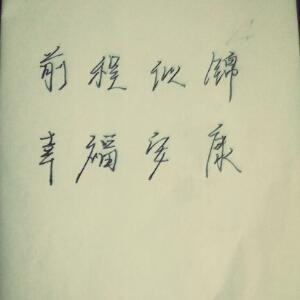 前程似锦
幸福安康